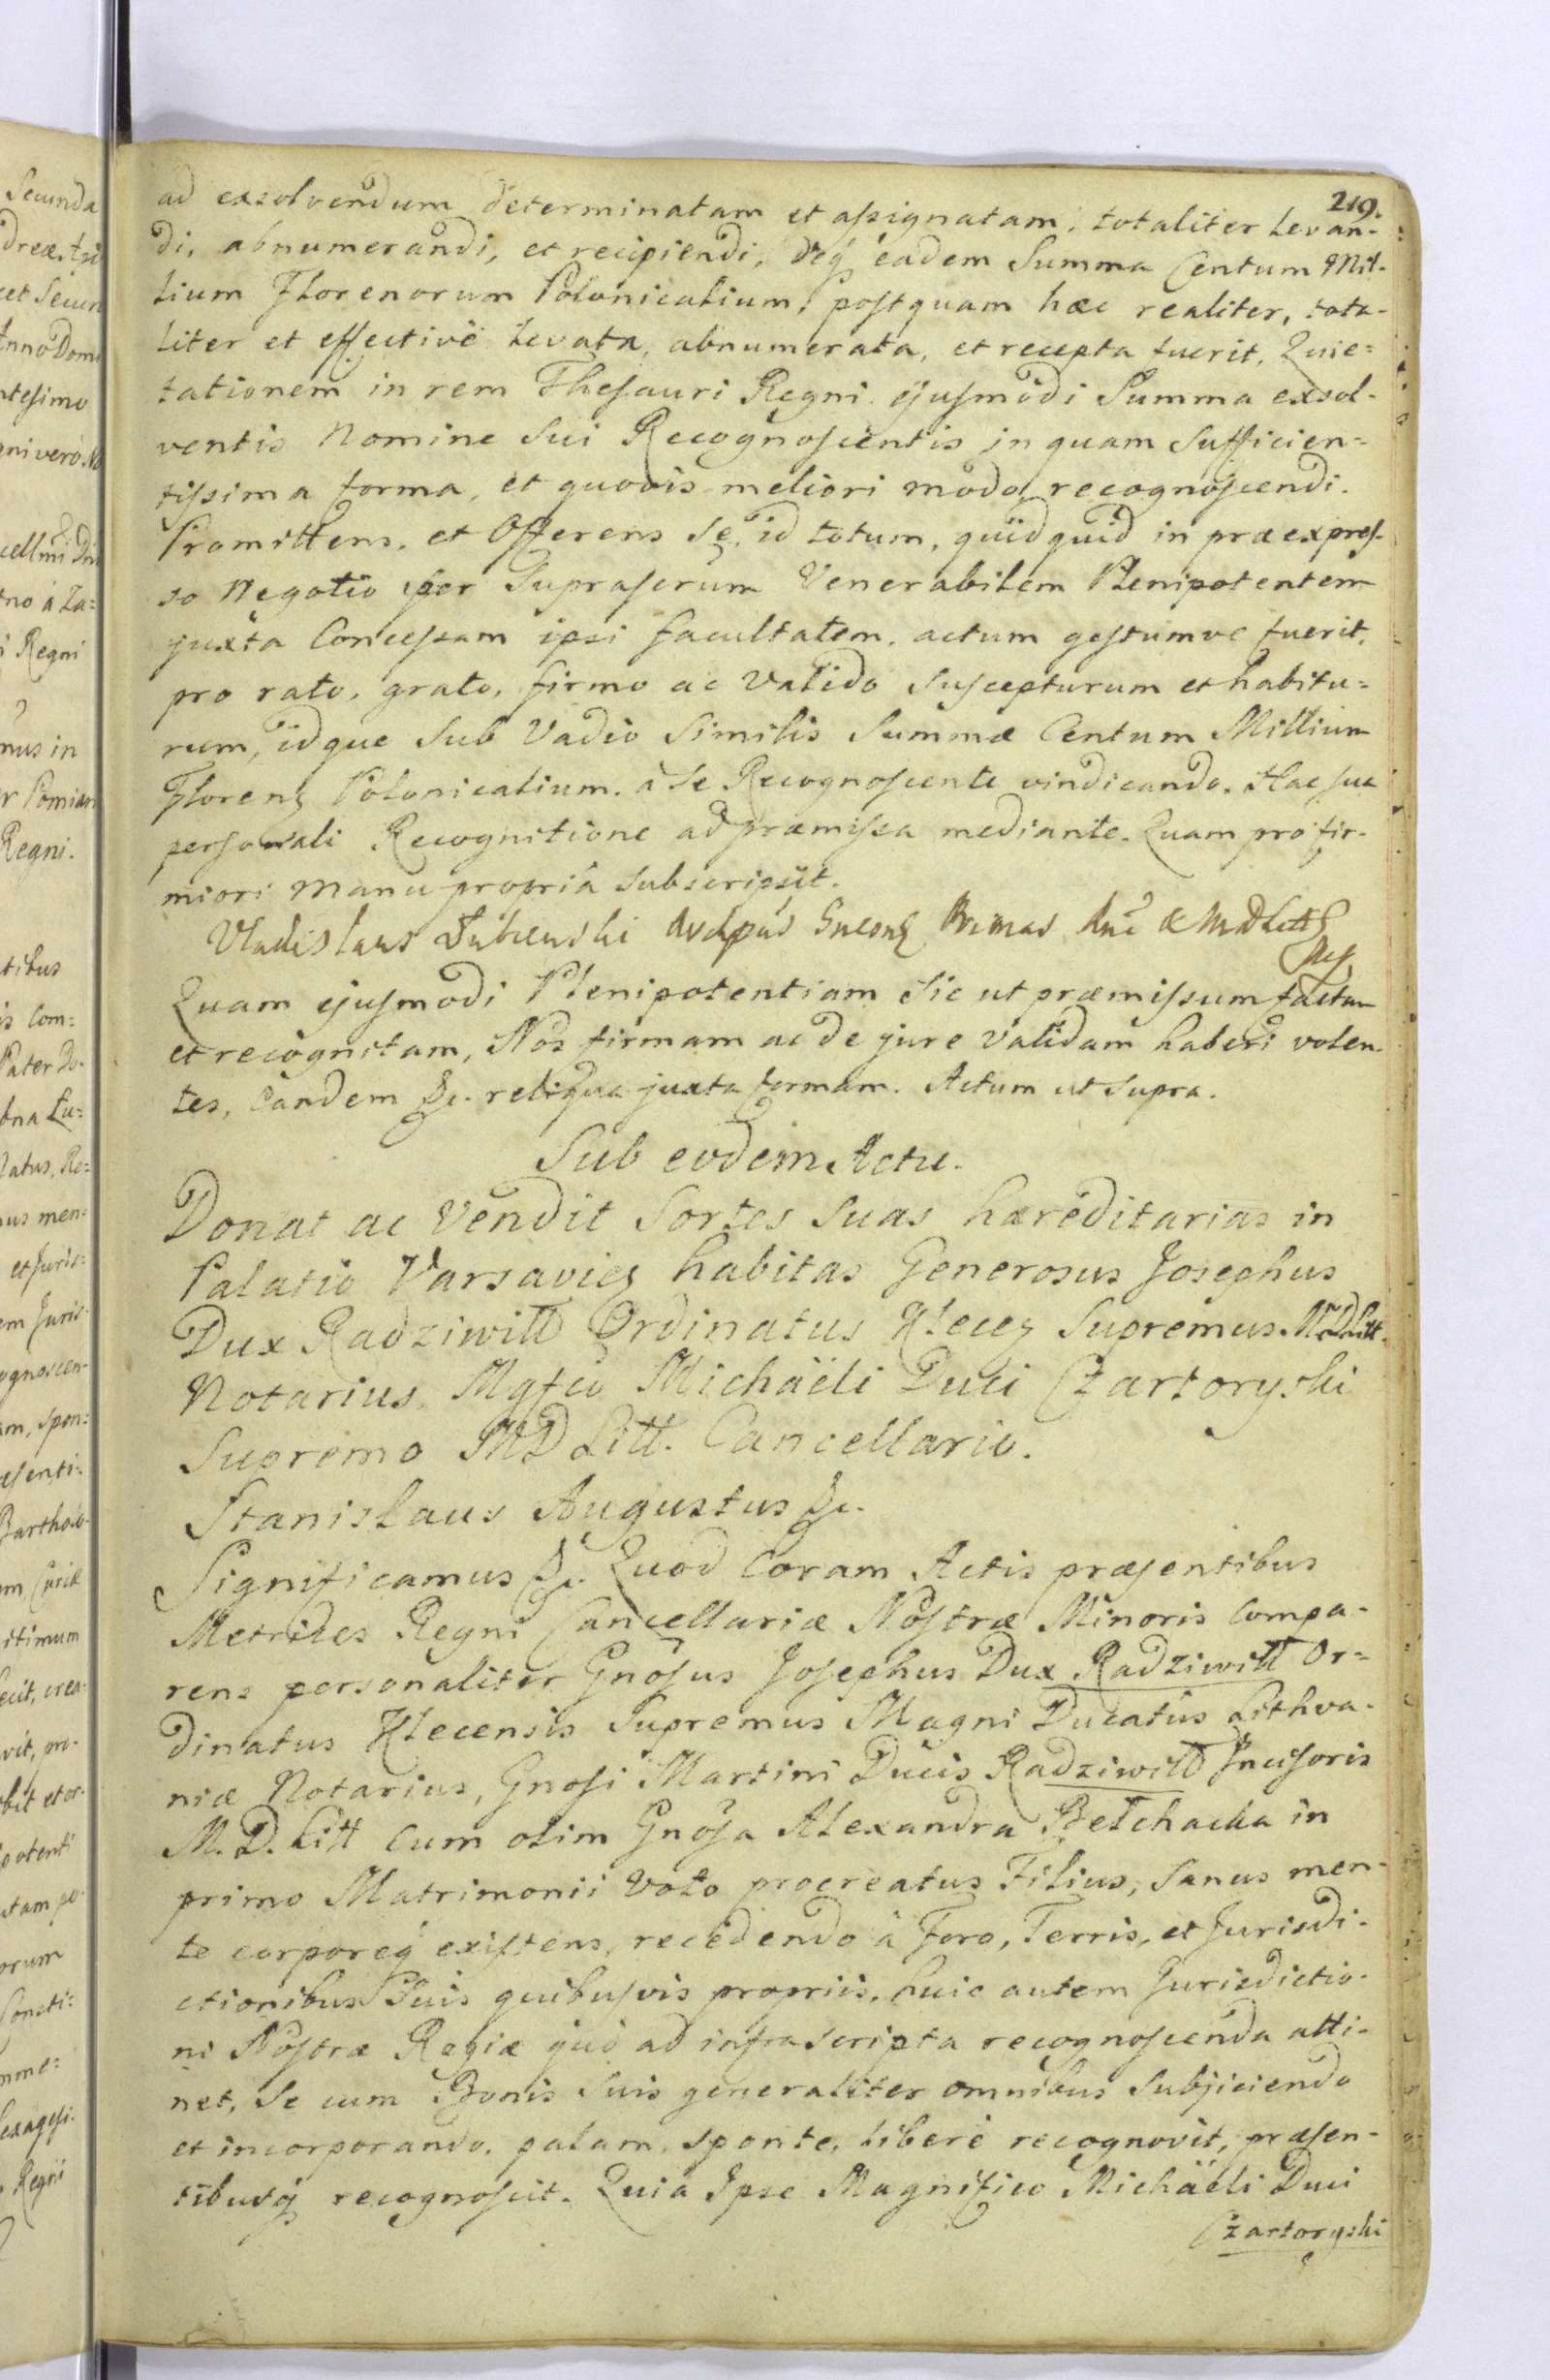 219.
ad exsolvendum determinatam et assignatam, totaliter Levan-
di, abnumerandi, et recipiendi, deq́ eadem Summa Centum Mil-
lium Florenorum Polonicalium, postquam hæc realiter, tota-
liter et effectivè Levata, abnumerata, et recepta fuerit, Quie=
tationem in rem Thesauri Regni ejusmodi Summa exsol-
ventis Nomine Sui Recognoscentis in quam Sufficien=
tissima forma, et quovis meliori modo recognoscendi.
Promittens, et Offerens Se, id totum, quidquid in præexpres-
so Negotio per Suprascrum Venerabilem Plenipotentem
juxta Concessam ipsi facultatem, actum gestumve fuerit,
pro rato, grato, firmo ac Valido Suscepturum et habitu=
rum, idque Sub Vadio Similis Summæ Centum Millium
Florenꝫ Polonicalium. à Se Recognoscente vindicando. Hac sua
personali Recognitione ad præmissa mediante. Quam pro fir-
miori Manu propriâ Subscripsit.
Vladislaus Łubieński Gnesnꝫ Primas
Quam ejusmodi Plenipotentiam Sic ut præmissum factam
et recognitam, Nos firmam ac de jure Validam haberi volen-
tes, Eandem &c. reliqua juxta formam. Actum ut Supra.
Sub eodem Actu.
Donat ac Vendit Sortes Suas hæreditarias in
Palatio Varsavieꝫ habitas Generosus Josephus
Dux Radziwiłł Ordinatus Klecꝫ Supremus M.D.Litt.
Notarius, Mgfco Michaëli Duci Czartoryski
Supremo MD Litt. Cancellario.
Stanislaus Augustus &c.
Significamus &c. Quod Coram Actis præsentibus
Metrices Regni Cancellariæ Nostræ Minoris Compa-
rens personaliter Gnosus Josephus Dux Radziwiłł Or=
dinatus Klecensis Supremus Magni Ducatûs Lithva-
niæ Notarius, Gnosi Martini Ducis Radziwiłł Incisoris
M.D. Litt cum olim Gnosa Alexandra Bełchacka in
primo Matrimonii Voto procreatus Filius, Sanus men-
te corporeq́ existens, recedendo à Foro, Terris, et Jurisdi-
ctionibus Suis quibusvis propriis, huic autem Jurisdictio-
ni Nostræ Regiæ quò ad infrascripta recognoscenda atti-
net, Se cum Bonis Suis generaliter omnibus Subjiciendo
et incorporando, palam, sponte, liberè recognovit, præsen-
tibusq́ recognoscit. Quia Ipse Magnifico Michäeli Duci
Czartoryski